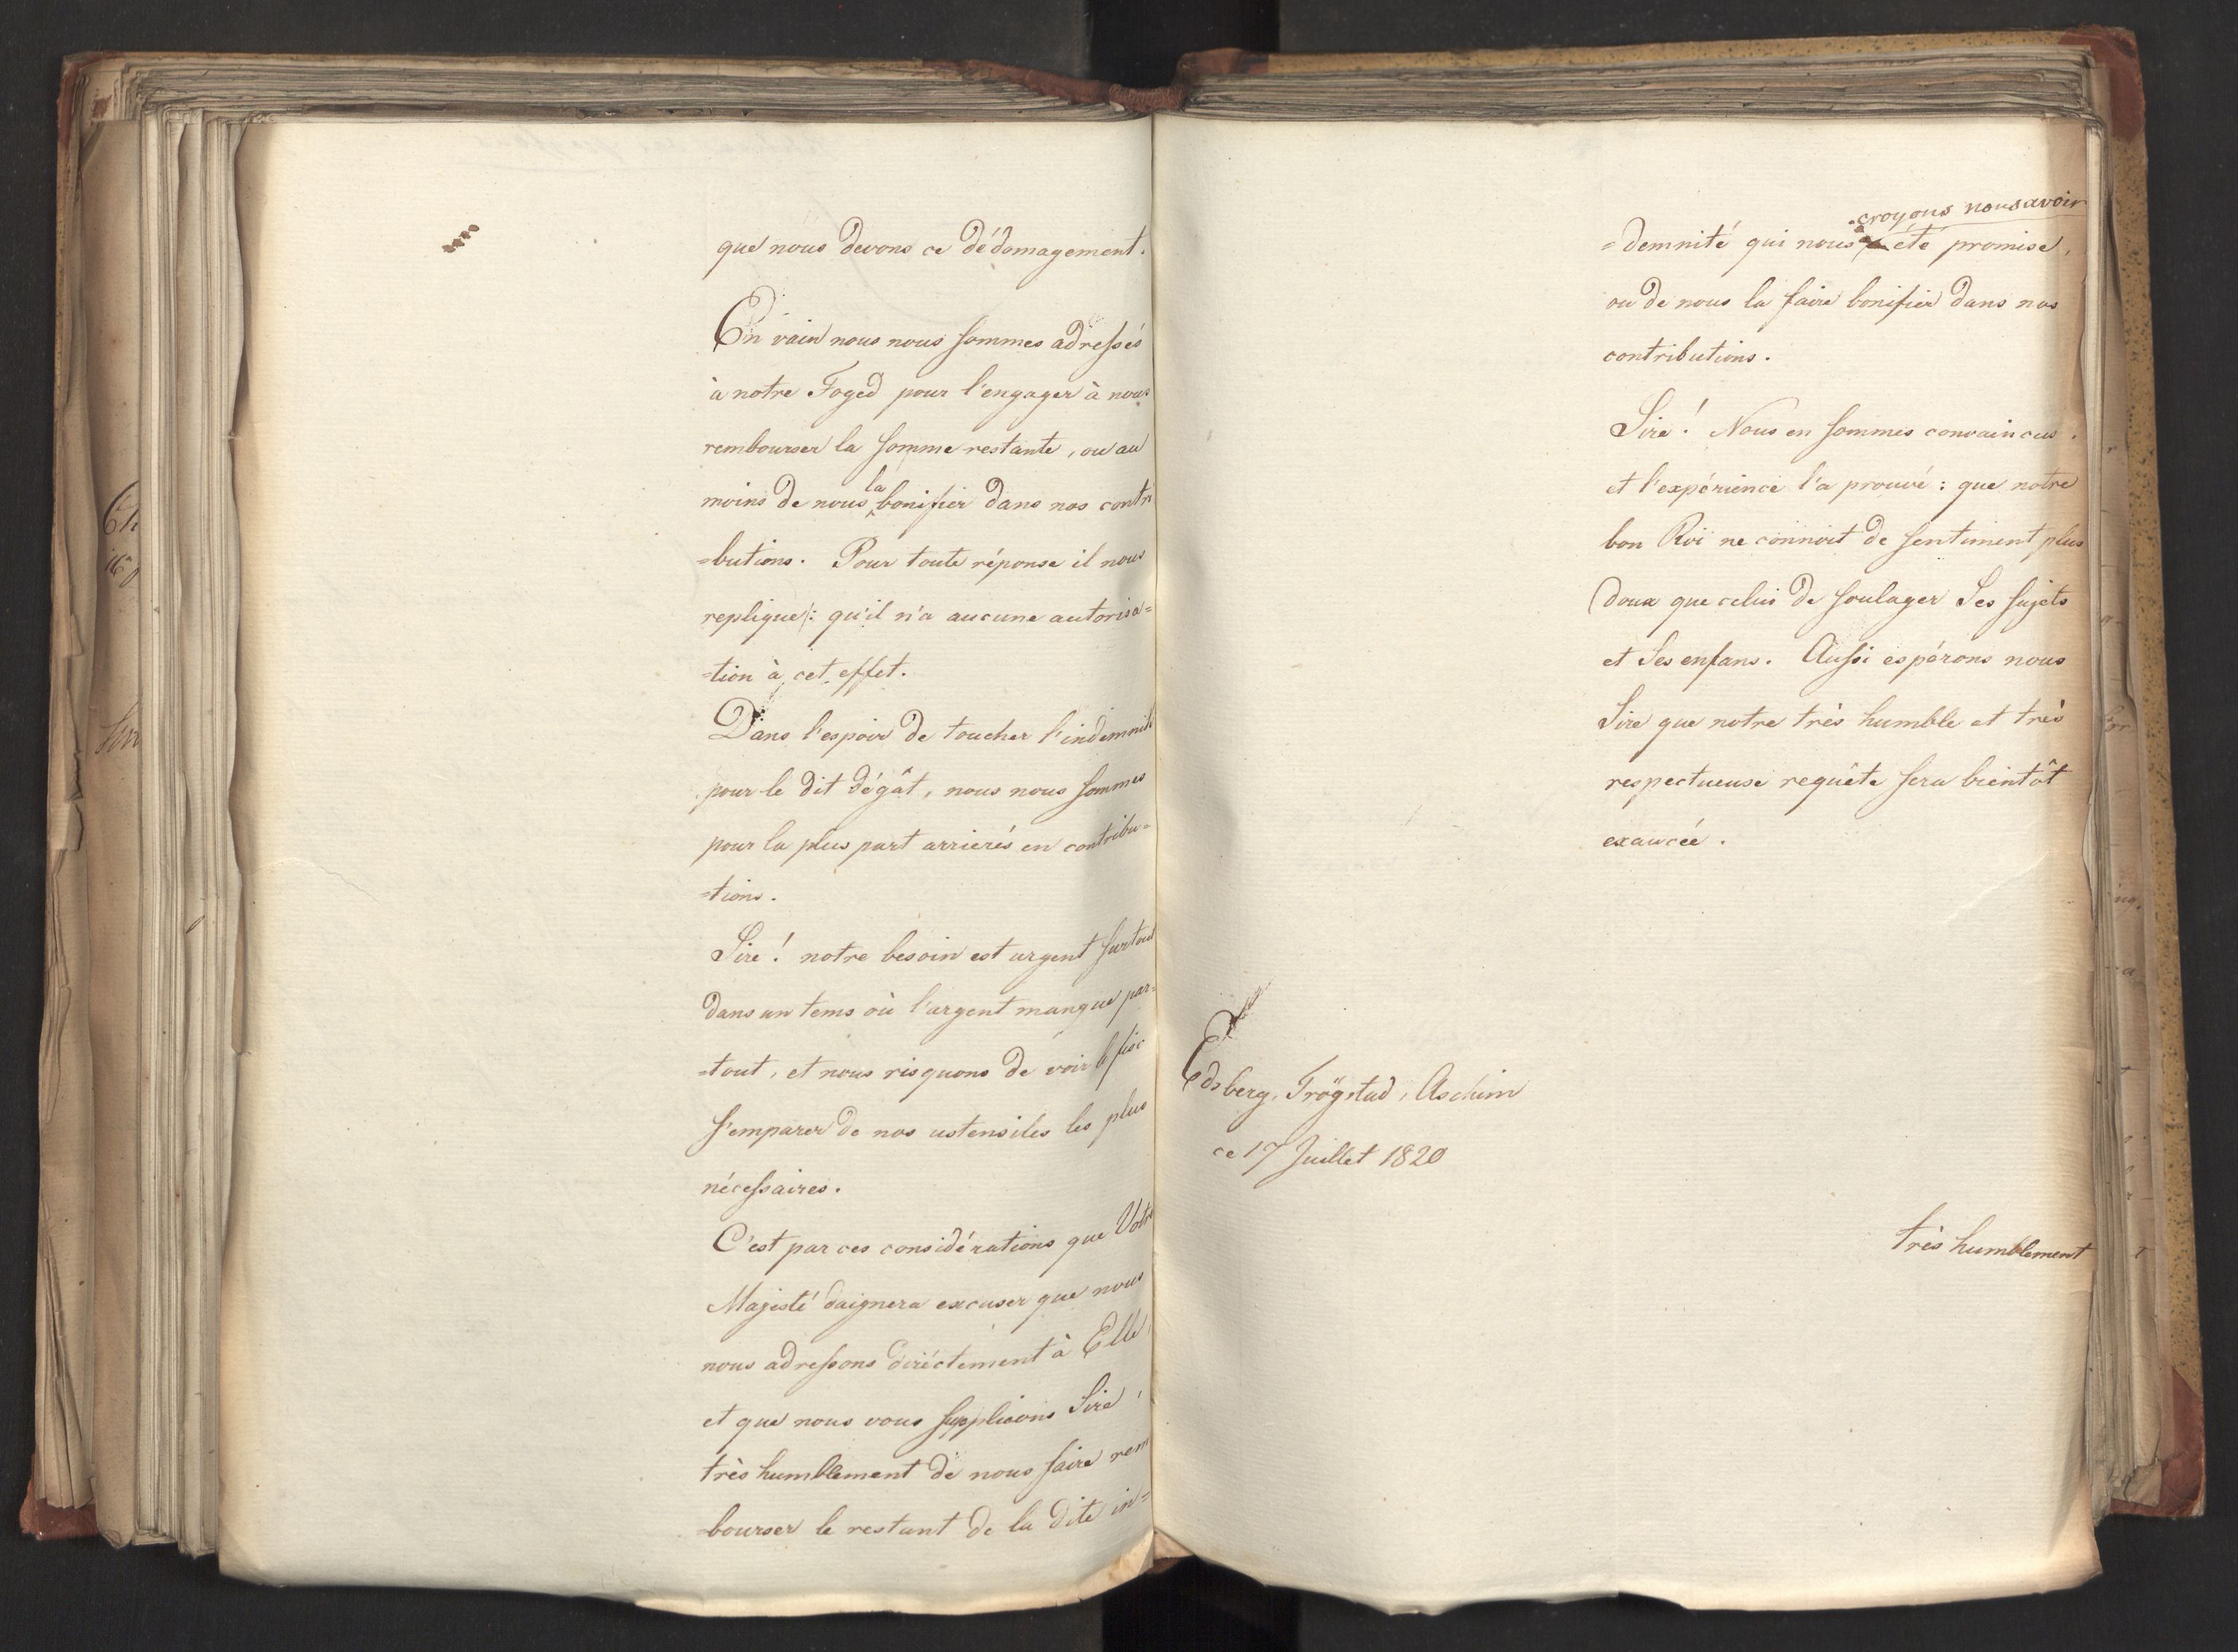 que nous devons ce dédomagement.
En vain nous nous sommes adressés
à notre Foged pour l'engager à nous
rembourser la somme restante, ou au
moins de nous la bonifier dans nos contri
=butions. Pour toute réponse il nous
replique: qu'il n'a aucune autorisa=
=tion à cet effet.
Dans l'espoir de toucher l'indemnité
pour le dit dégât, nous nous sommes
pour la plus part arrierés en contribu=
=tions.
Sire! notre besoin est urgent surtout
dans un tems où l'argent manque par=
=tout, et nous risquons de voir le fisc
s'emparer de nos ustensiles les plus
nécessaires.
C'est par ces considérations que Votre
Majesté daignera excuser que nous
nous adressons diréctement à Elle,
et que nous vous supplions Sire!
très humblement de nous faire rem
bourser le restant de la dite in=
croyons nous avoir
=demnité qui nous a été promise,
ou de nous la faire bonifier dans nos
contributions.
Sire! Nous en sommes convaincus,
et l'expérience l'a prouvé: que notre
bon Roi ne connoit de sentiment plus
doux que celui de soulager Ses sujets
et Ses enfans. Aussi espérons nous
Sire que notre très humble et très
respectueuse requête sera bientôt
exaucée.
Edsberg, Trögstad, Aschim
ce 17 Juillet 1820
très humblement